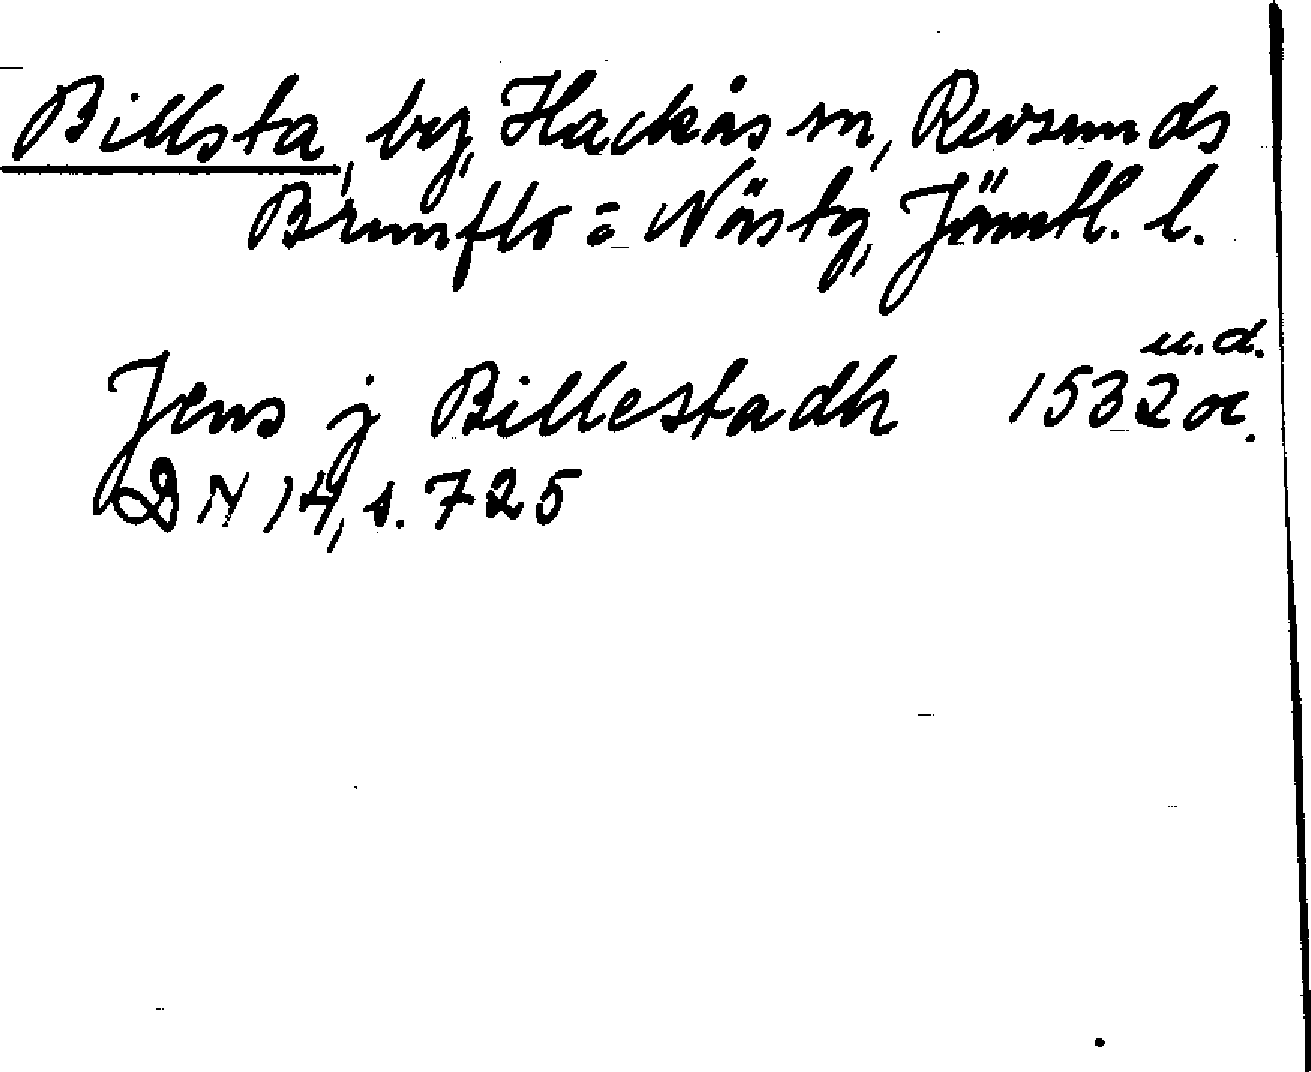 Billsta, by, Hackås sn, Revsunds
Brunflo = Näs tg, Jämtl. l.
u.d.
Jens j Billestadh 1532 or.
DN 14, s. 725